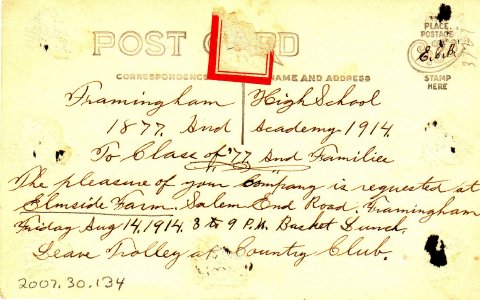 POST CARD
PLACE
POSTAGE
E.C.B.
STAMP
HERE
CORRESPONDENCE NAME AND ADDRESS
Framingham High School
1877. And Academy 1914.
To Class of '77 And Families
The pleasure of your Company is requested at
Elmside Farm. Salem End Road. Framingham
Friday Aug 14, 1914. 3 to 9 P.M. Basket Lunch.
Leave Trolley at Country Club.
2007.30.134